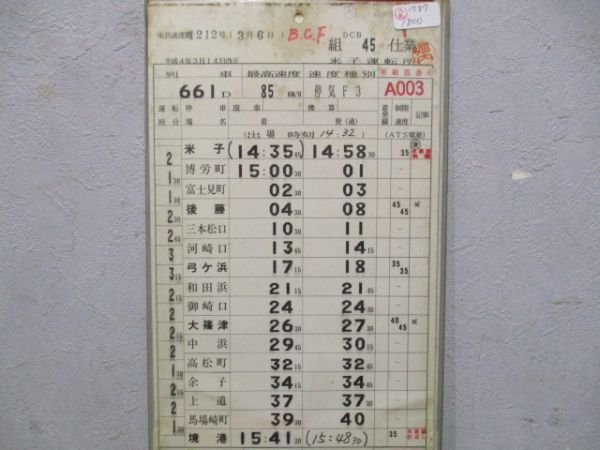 212号 (3月6日) B.C.F
1987
1800
DCB
組 45 仕業
平成4年3月14日改正 米子運転所
列 車 最高速度 速度種別
661D 85 KM/H 停気F3 A003
運転 停車場名 現車 着 換算 発(通) 着発線 制限速度 記事
時分
(出場 時刻 14:32) (ATS電源)
米子 (14:35 45) 14:58 30 35
2 博労町 15:00 30 01 -
1 30 富士見町 02 30 03 -
1 30 後藤 04 30 08 45 45
2 30 三本松口 10 30 11 -
2 45 河崎口 13 45 14 15 -
3 弓ヶ浜 17 15 18 35 35
3 15 和田浜 21 15 21 45 -
2 15 御崎口 24 24 30 -
2 大篠津 26 30 27 30 40 45
2 15 中浜 29 45 30 15 -
2 高松町 32 15 32 45 -
1 30 余子 34 15 34 45 -
2 15 上道 37 37 30 -
2 馬場崎町 39 30 40 -
1 30 境港 15:41 30 (15:48 30) 35